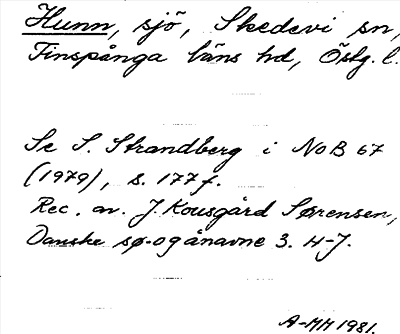 Hunn, sjö, Skedevi sn,
Finspånga läns hd, Östg. l.
Se S. Strandberg i NoB 67
(1979), s. 177 f.
Rec. av. J. Kousgård Sørensen,
Danske sø- og ånavne 3. H-J.
A-MH 1981.